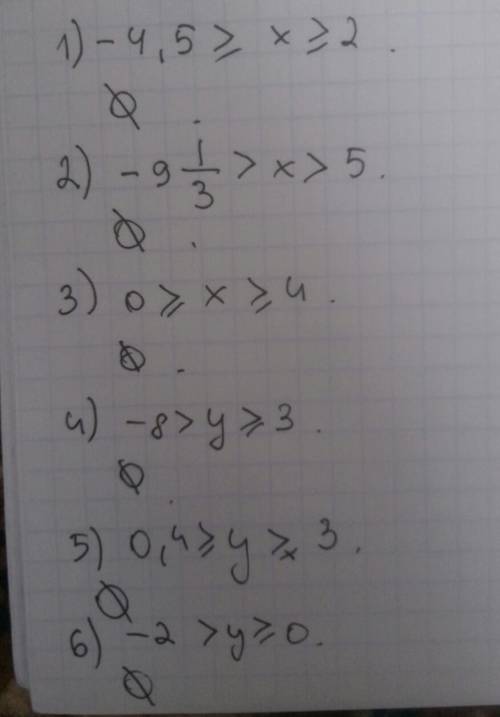 1) -4,5 ≥ x ≥ 2 .
∅ .
2) -9 1/3 > x > 5 .
∅ .
3) 0 ≥ x ≥ 4 .
∅ .
4) -8 > y ≥ 3 .
∅ .
5) 0,4 ≥ y ≥ 3 .
∅
6) -2 > y ≥ 0 .
∅